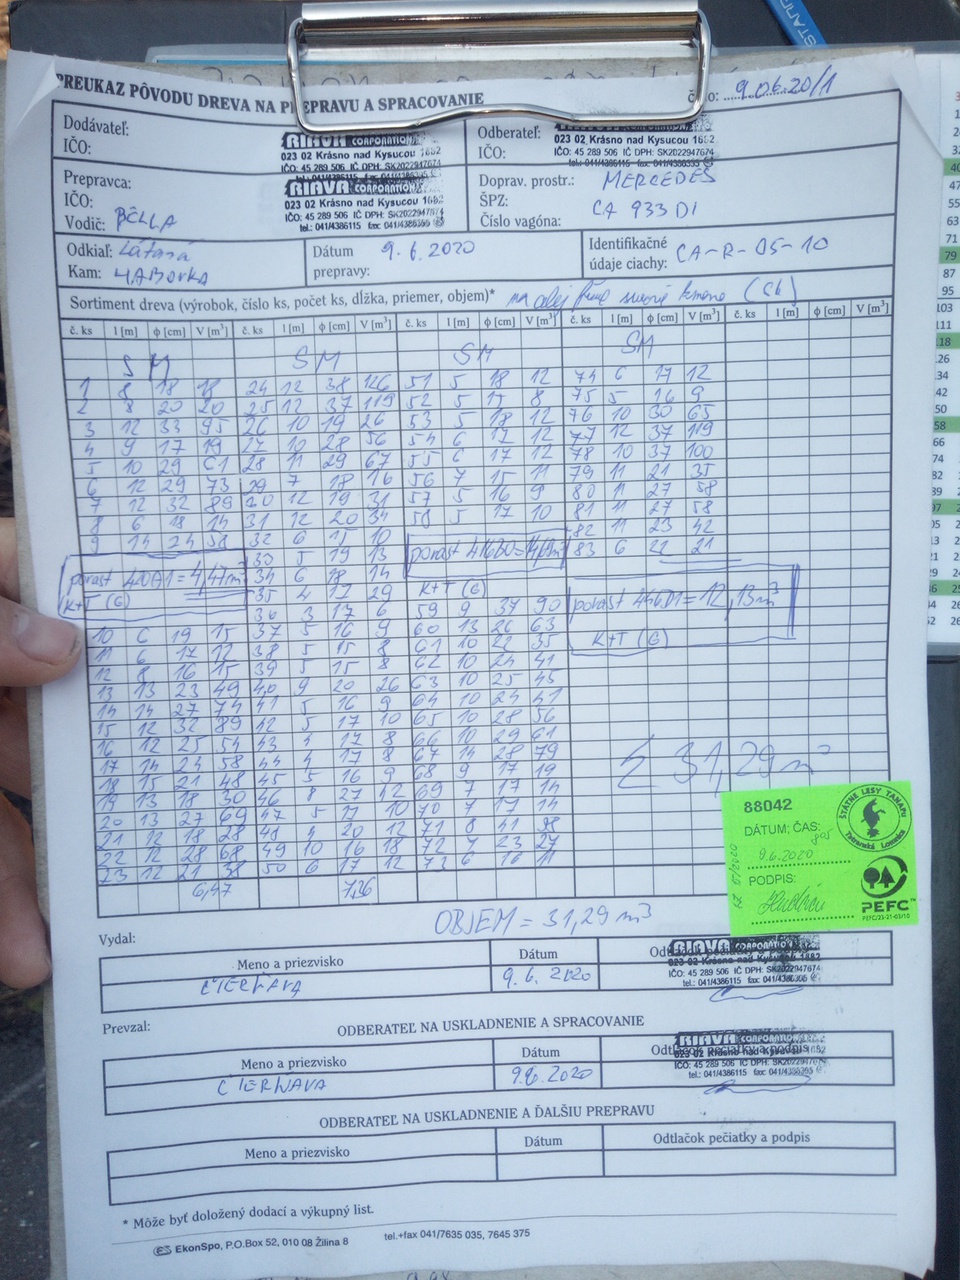 PREUKAZ PÔVODU DREVA NA PREPRAVU A SPRACOVANIE
9.06.20/1
Dodávateľ:
IČO:
RIAVA CORPORATION
023 02 Krásno nad Kysucou 1682
IČO: 45 289 506 IČ DPH: SK2022947674
Odberateľ:
IČO:
023 02 Krásno nad Kysucou 1682
IČO: 45 289 506 IČ DPH: SK2022947674
tel.: 041/4386115 fax: 041/4386355
Prepravca:
IČO:
Vodič: BELLA
RIAVA CORPORATION
023 02 Krásno nad Kysucou 1682
IČO: 45 289 506 IČ DPH: SK2022947674
tel.: 041/4386115 fax: 041/4386355
Doprav. prostr.: MERCEDES
ŠPZ:
Číslo vagóna: CA 933 DI
Odkiaľ:
Kam:
Dátum prepravy: 9. 6. 2020
Identifikačné údaje ciachy: CA-R-05-10
Sortiment dreva (výrobok, číslo ks, počet ks, dĺžka, priemer, objem)*
č. ks l [m] ϕ [cm] V [m³] č. ks l [m] ϕ [cm] V [m³] č. ks l [m] ϕ [cm] V [m³] č. ks l [m] ϕ [cm] V [m³] č. ks l [m] ϕ [cm] V [m³]
SM SM SM SM
1 8 18 18 24 12 38 126 51 5 18 12 74 6 17 12
2 8 20 20 25 12 37 119 52 5 17 8 75 5 16 9
3 12 33 95 26 10 19 26 53 5 18 12 76 10 30 65
4 9 17 19 27 10 28 56 54 6 17 12 77 12 37 119
5 10 29 61 28 11 29 67 55 6 17 12 78 10 37 100
6 12 29 73 29 7 18 16 56 7 15 11 79 11 21 35
7 12 32 89 30 12 19 31 57 5 16 9 80 11 27 58
8 6 18 14 31 12 20 34 58 5 17 10 81 11 27 58
9 14 24 58 32 6 15 10 82 11 23 42
33 5 19 13 83 6 22 21
34 6 18 14
porast = 4,47m³
K+T (6)
K+T (6)
porast = 12,13m³
K+T (6)
35 4 17 29
36 3 17 6 59 9 37 90
10 6 19 15 37 5 16 9 60 13 26 63
11 6 17 12 38 5 15 8 61 10 22 35
12 8 16 15 39 5 15 8 62 10 24 41
13 13 23 49 40 9 20 26 63 10 25 45
14 14 27 74 41 5 16 9 64 10 24 41
15 12 32 89 42 5 17 10 65 10 28 56
16 12 25 54 43 4 17 8 66 10 29 61
17 14 24 58 44 4 17 8 67 14 28 79
18 15 21 48 45 5 16 9 68 9 17 19
19 13 18 30 46 8 27 42 69 7 17 14
20 13 27 69 47 5 17 10 70 7 17 14
21 12 18 28 48 4 20 12 71 8 41 98
22 12 28 68 49 10 16 18 72 7 23 27
23 12 21 38 50 6 17 12 73 6 16 11
6,47 7,36
Σ 31,29 m³
88042
DÁTUM; ČAS:
9.6.2020
PODPIS:
ŠTÁTNE LESY TANAPU
Tatranská Lomnica
PEFC
PEFC/23-21-03/10
OBJEM = 31,29 m³
Vydal:
Meno a priezvisko Dátum
ČIERNAVA 9. 6. 2020
RIAVA CORPORATION
023 02 Krásno nad Kysucou 1682
IČO: 45 289 506 IČ DPH: SK2022947674
tel.: 041/4386115 fax: 041/4386355
Prevzal:
ODBERATEĽ NA USKLADNENIE A SPRACOVANIE
Meno a priezvisko Dátum Odtlačok pečiatky a podpis
ČIERNAVA 9.6.2020
RIAVA CORPORATION
023 02 Krásno nad Kysucou 1682
IČO: 45 289 506 IČ DPH: SK2022947674
tel.: 041/4386115 fax: 041/4386355
ODBERATEĽ NA USKLADNENIE A ĎALŠIU PREPRAVU
Meno a priezvisko Dátum Odtlačok pečiatky a podpis
* Môže byť doložený dodací a výkupný list.
EkonSpo, P.O.Box 52, 010 08 Žilina 8 tel.+fax 041/7635 035, 7645 375